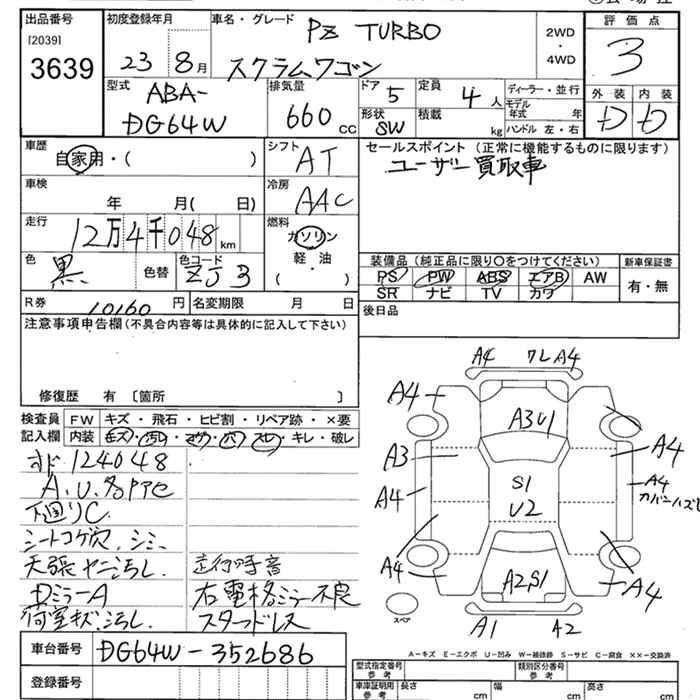 出品番号
[2039]
3639
初度登録年月
23 8月
車名・グレード
PZ TURBO
スクラムワゴン
2WD
・
4WD
評価点
3
型式
ABA-
DG64W
排気量
660 cc
ドア
5
形状
SW
定員
4人
積載
kg
ディーラー・並行
モデル年式 年
ハンドル 左・右
外装 内装
D D
車歴
自家用・( )
シフト
AT
車検
年 月( 日)
冷房
AAC
走行
12万4千048km
燃料
ガソリン
軽・油
・
( )
色
黒
色替
色コード
ZJ3
R券
10160円
名変期限 月 日
セールスポイント(正常に機能するものに限ります)
ユーザー買取車
装備品(純正品に限り〇をつけてください)
PS PW ABS エアB AW
SR ナビ TV カワ
新車保証書
有・無
後日品
注意事項申告欄(不具合内容等は具体的に記入して下さい)
修復歴 有 〔箇所 〕
検査員記入欄
FW キズ・飛石・ヒビ割・リペア跡・×要
内装 キズ・汚れ・コゲ・穴・スレ・キレ・破レ
オド124048
A.U.各所色
下廻りC
シートコゲ穴、シミ
天張ヤニ汚し
DミラーA
荷室キズ汚し
走行時音
右電格ミラー不良
スタッドレス
A4 ワレA4
A4
A3U1
A3
A4
A4
A4
カバーハズレ
S1
U2
A4
A2S1
A4
A1 A2
スペア
A-キズ E-エクボ U-凹み W-補修跡 S-サビ C-腐食 ××-交換済
車台番号
DG64W-352686
登録番号
型式指定番号
参考
類別区分番号
参考
車庫証明用
参考
長さ cm
幅 cm
高さ cm